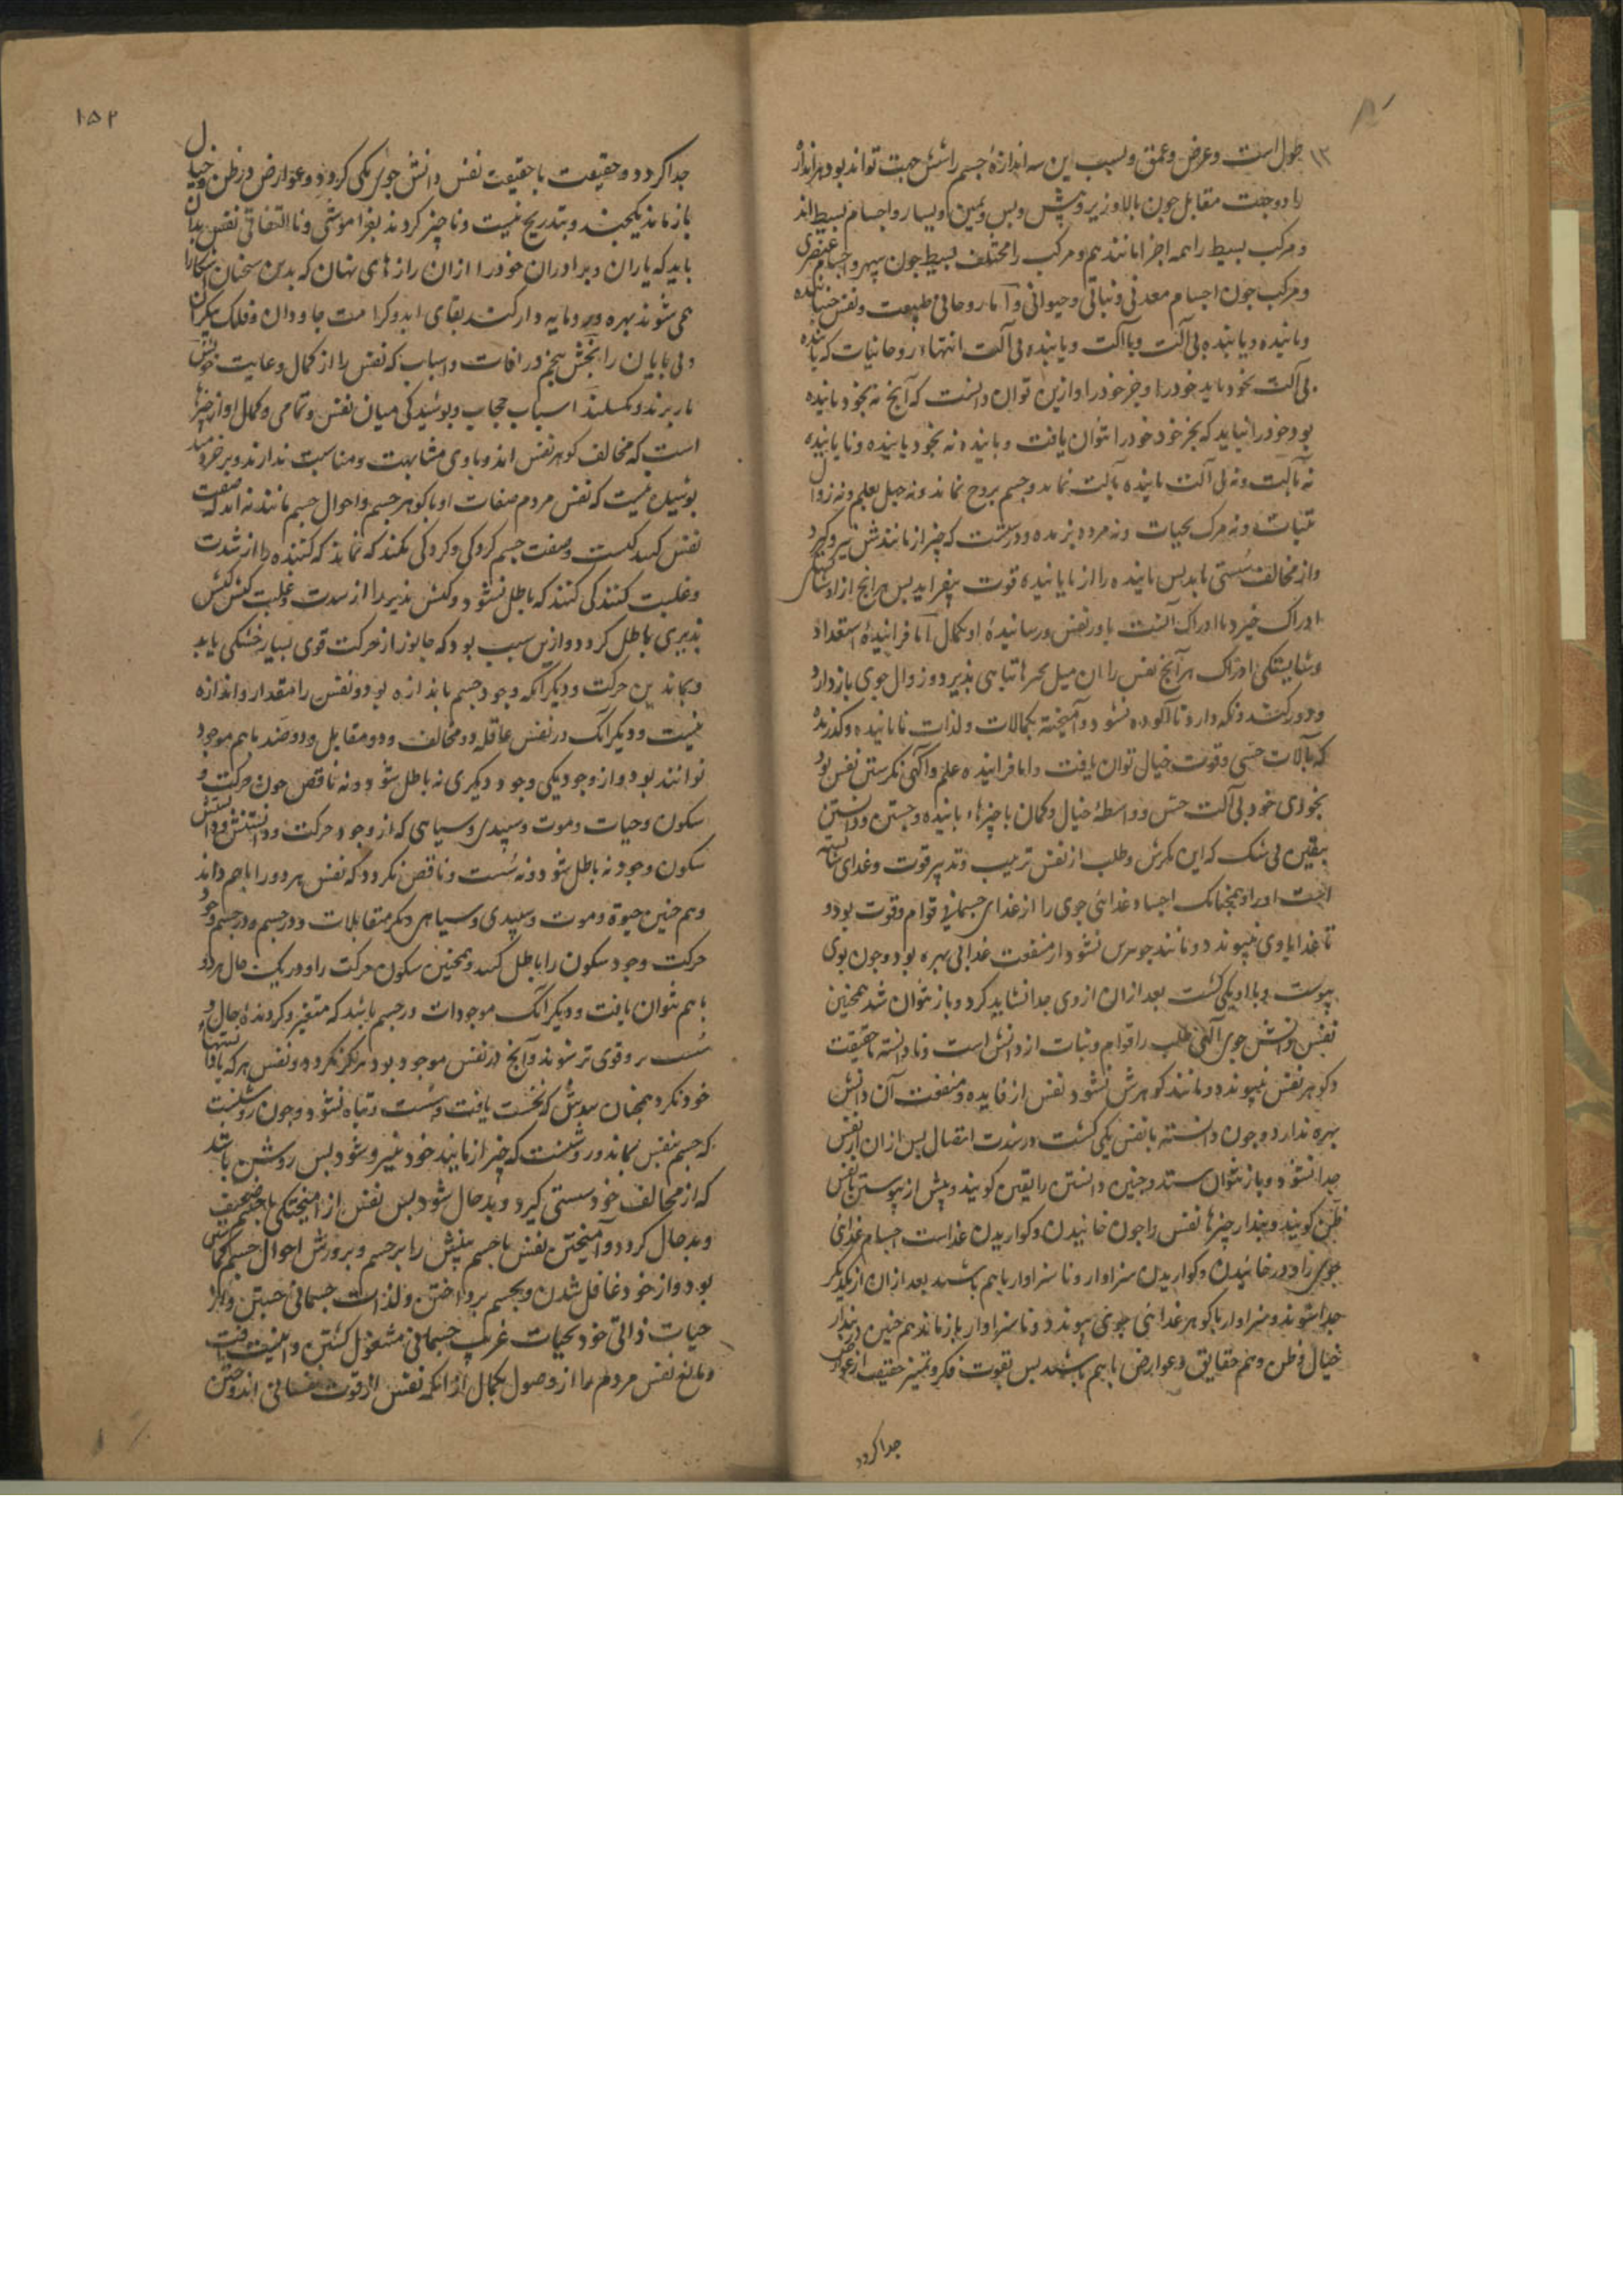 طول است و عرض و عمق و بسبب این سه اندازهٔ جسم را شش جهت تواند بود هر اندازهٔ
را دو جهت مقابل چون بالا و زیر و پیش و پس و یمین و یسار و اجسام بسیط اند
و مرکب بسیط را همه اجزا مانند هم و مرکب را مختلف بسیط چون سپهر و اجسام عنصری
و مرکب چون اجسام معدنی و نباتی و حیوانی و اما روحانی طبیعت و نفس جنباننده
و یابنده بی آلت و با آلت و یابنده بی آلت انتهاء روحانیات که یابنده
بی آلت بخود یابد خود را و جز خود را و ازین توان دانست که آنچ نه بخود یابنده
بود خود را نیابد که بجز خود خود را نتوان یافت و یابنده نه بخود یابنده و نایابنده
نه بآلت و نه بی آلت یابنده بآلت نماند و جسم بروح نماند و نه جهل بعلم و نه زوال
بثبات و نه مرک بحیات و نه مرده بزنده و درست که چیز از مانندش نیرو گیرد
و از مخالف سستی یابد پس یابنده را از نایابنده قوت نیفزاید پس هر آنچ از او
ادراک خیزد با ادراک آنست یاور نفس و رسانیدهٔ او بکمال اما فزایندهٔ استعداد
و شایستکی ادراک هر آنچ نفس را از میل بچیزهای تباهی پذیر و زوال جوی باز دارد
و دور کند و نکه دارد تا آلوده نشود و آمیخته بکمالات و لذات ناپاینده و کذرنده
که بآلات حسی و قوت خیال توان یافت و اما فزاینده علم و آکهی نکرستن نفس بود
بخودی خود بی آلت حس و واسطهٔ خیال و کمان با چیزهاء یابنده و جستن و دانستن
بیقین بی شک که این نکرش و طلب از نفس ترتیب و تدبیر قوت و غدای شایسته
است او را و همچنانک اجساد غدائی جوی را از غدای جسمانی قوام و قوت بود و
تا غدا با وی نپیوندد و مانند جوهرش نشود از منفعت غدا بی بهره بود و چون بوی
پیوست و با او یکی کشت بعد از ان از وی جدا نشاید کرد و باز نتوان شد همچنین
نفس دانش جوی آکهی طلب را قوام و ثبات از دانش است و تا دانسته بحقیقت
و کوهر نفس نپیوندد و مانند کوهرش نشود نفس از فایده و منفعت آن دانش
بهره ندارد و چون دانسته با نفس یکی کشت و رشدت اتصال پس از ان از نفس
جدا نشود و باز نتوان ستد و چنین دانستن را یقین کویند و پیش از پیوستن بنفس
ظن کویند و پندار چیزها نفس را چون خائیدن و کواریدن غداست اجسام غدائی
جوی را و در خائیدن و کواریدن سزاوار و نا سزاوار با هم باشند بعد از ان از یکدیگر
جدا شوند و سزاوار با کوهر غدائی جوی پیوندد و ناسزاوار باز ماند هم چنین در پندار
خیال و ظن و هم حقایق و عوارض با هم باشند پس بقوت فکر و تمیز حقیقت از عوارض
جدا کردد
۱۵۲
جدا کردد و حقیقت با حقیقت نفس دانش جوی یکی کردد و عوارض در ظن و خیال
باز ماند یکچند و بتدریج نیست و ناچیز کردند بفراموشی و نا التفاتی نفس بدان
باید که یاران و برادران خود را از ان رازهای نهان که بدین سخنان آشکارا
همی شوند بهره ور و مایه دار کنند بقای ابد و کرامت جاودان و فلک بیکران
و بی پایان را بخش پنجم در آفات و اسباب که نفس را از کمال و غایت خویش
باز برند و بکسلند اسباب حجاب و پوشیدکی میان نفس و تمامی و کمال او از چیزها
است که مخالف کوهر نفس اند و با وی مشابهت و مناسبت ندارند و بر خردمند
پوشیده نیست که نفس مردم صفات او با کوهر جسم و احوال جسم مانند نه اند که صفت
نفس کنندکیست و صفت جسم کردکی و کردکی بکنندکی نماند که کننده را از شدت
و غلبت کنندکی کنندکی باطل نشود و کنش پذیر را از شدت و غلبت کنش کنش
پذیری باطل کردد و ازین سبب بود که جانور از حرکت قوی بسیار خستکی یابد
و بماند ین حرکت و دیکر آنکه وجود جسم باندازه بود و نفس را مقدار و اندازه
نیست و دیکر آنک در نفس عاقله دو مخالف و دو مقابل و دو ضد با هم موجود
توانند بود و از وجود یکی وجود دیکری نه باطل شود و نه ناقص چون حرکت و
سکون و حیات و موت و سپیدی و سیاهی که از وجود حرکت و دانستنش
سکون وجود نه باطل شود و نه سست و ناقص نکردد که نفس هر دو را با هم داند
و هم چنین حیوة و موت و سپیدی و سیاهی و دیکر متقابلات و در جسم وجود
حرکت وجود سکون را باطل کند و همچنین سکون حرکت را و در یک حال هر دو
با هم نتوان یافت و دیکر آنک موجودات در جسم باشد که متغیر و کردندهٔ حال و
سست تر و قوی تر شوند و آنچ در نفس موجود بود هرکز نکردد و نفس هر که یافتها
خود نکرد همچنان بیندش که نخست یافت و سست و تباه نشود و چون روشنست
که جسم بنفس نماند و روشنست که چیز از مانند خود نیرو شود پس روشن باشد
که از مخالف خود سستی گیرد و بد حال شود پس نفس از آمیختکی با جسم ضعیف
و بد حال کردد و آمیختن نفس با جسم بینش را بر جسم و پرورش احوال جسم کماشتن
بود و از خود غافل شدن و بجسم پرداختن و لذات جسمانی جستن و از
حیات ذاتی خود بحیات غریب جسمانی مشغول کشتن و
و مانع نفس مردم را از وصول بکمال آنکه نفس از قوت نفسانی اندوختن